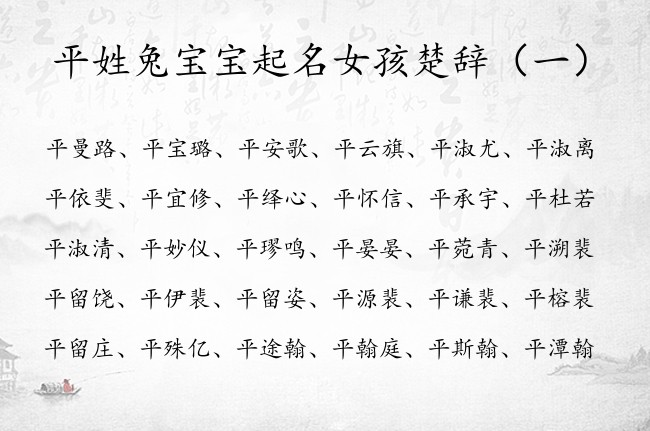 平姓兔宝宝起名女孩楚辞（一）
平曼路、平宝璐、平安歌、平云旗、平淑尤、平淑离
平依斐、平宜修、平绎心、平怀信、平承宇、平杜若
平淑清、平妙仪、平璆鸣、平晏晏、平菀青、平溯裴
平留饶、平伊裴、平留姿、平源裴、平谦裴、平榕裴
平留庄、平殊亿、平途翰、平翰庭、平斯翰、平潭翰